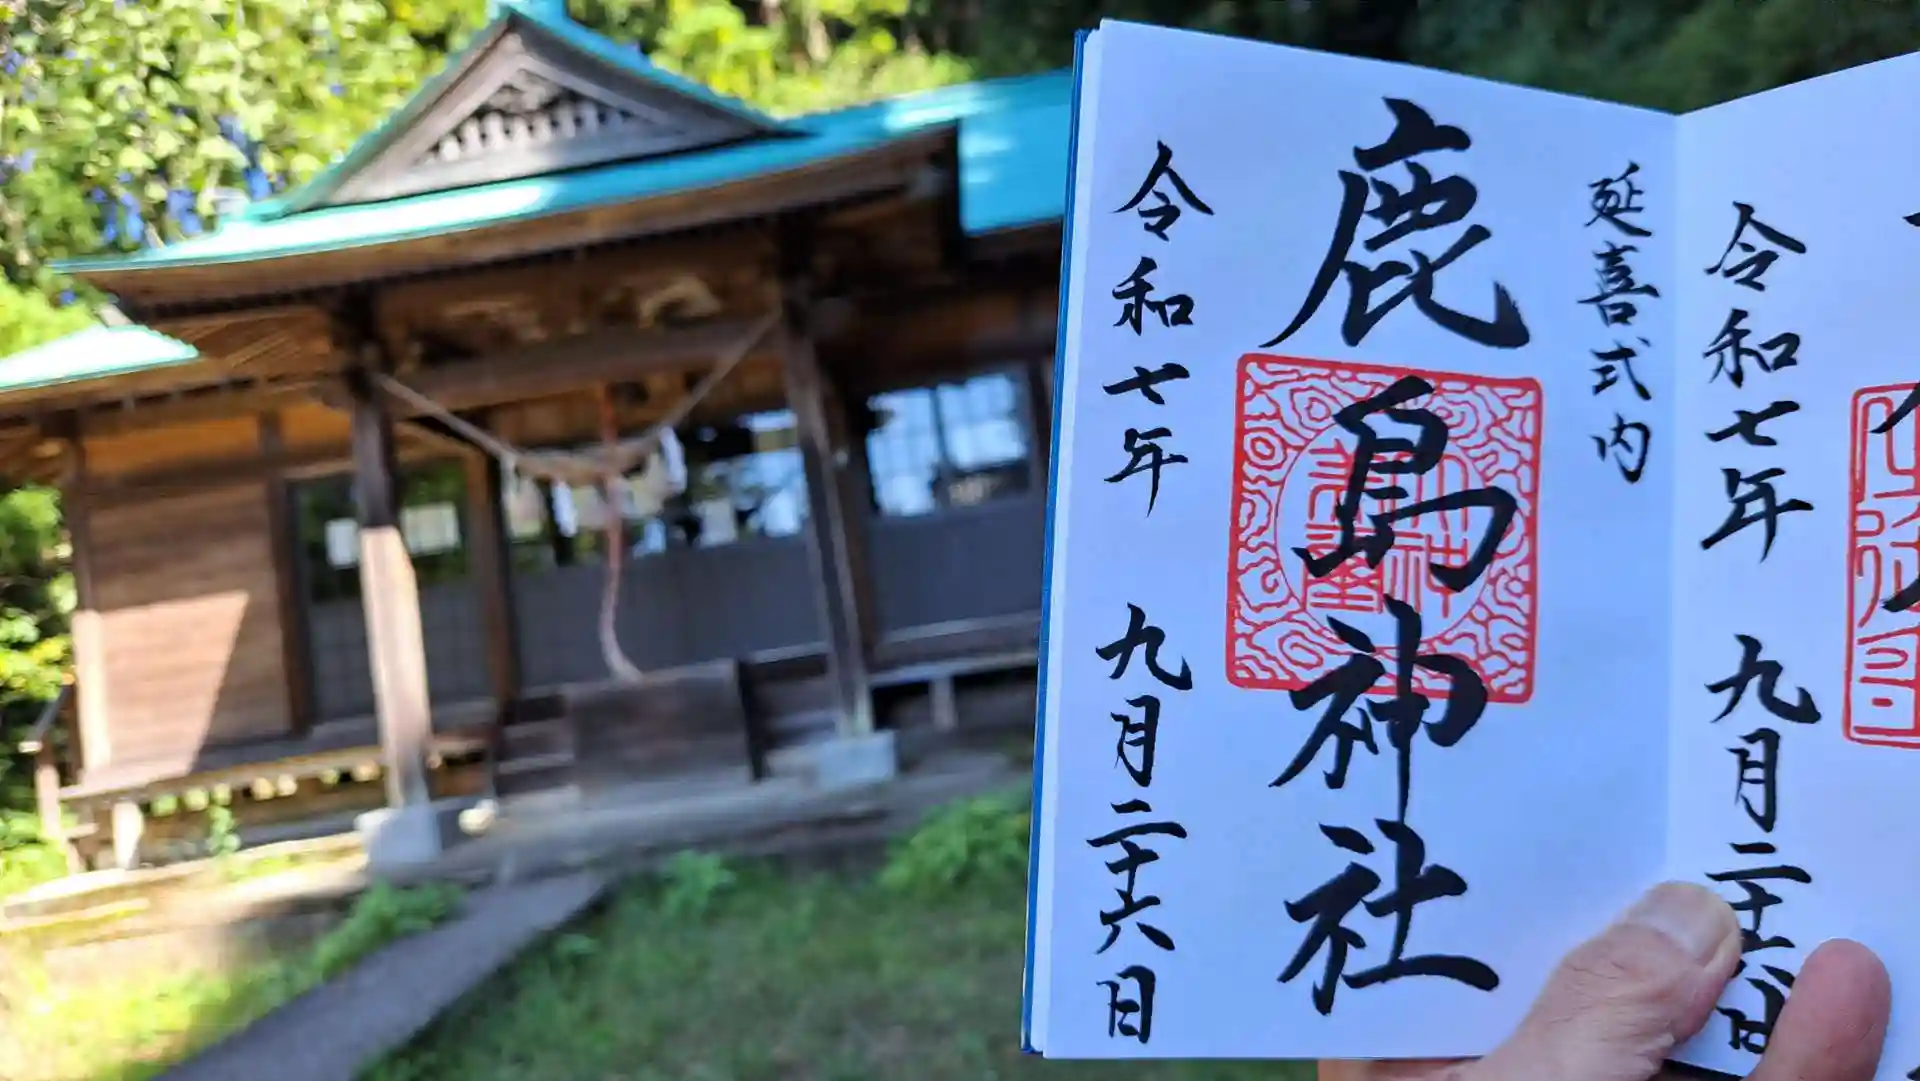 延喜式内
鹿島神社
令和七年 九月二十六日
令和七年 九月二十六日